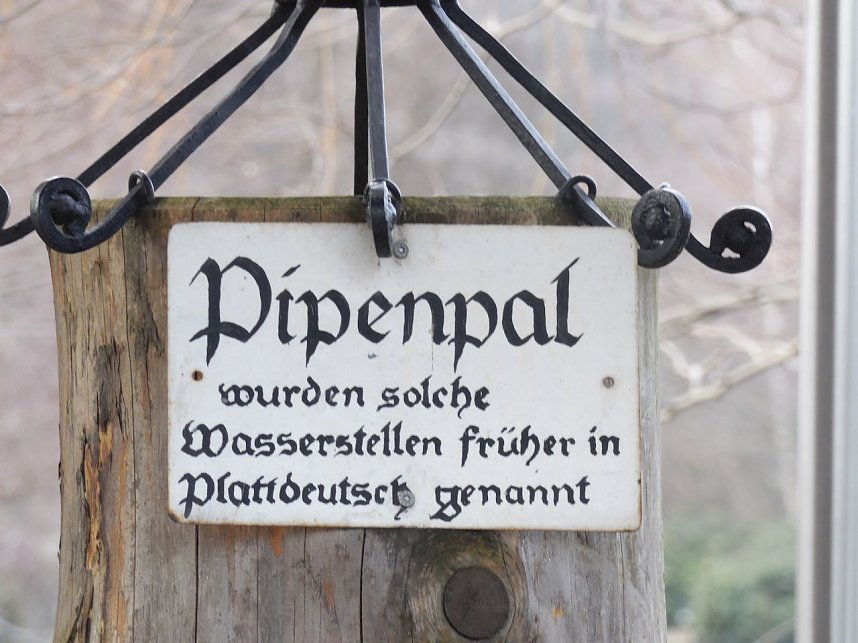 Pipenpal
wurden solche
Wasserstellen früher in
Plattdeutsch genannt